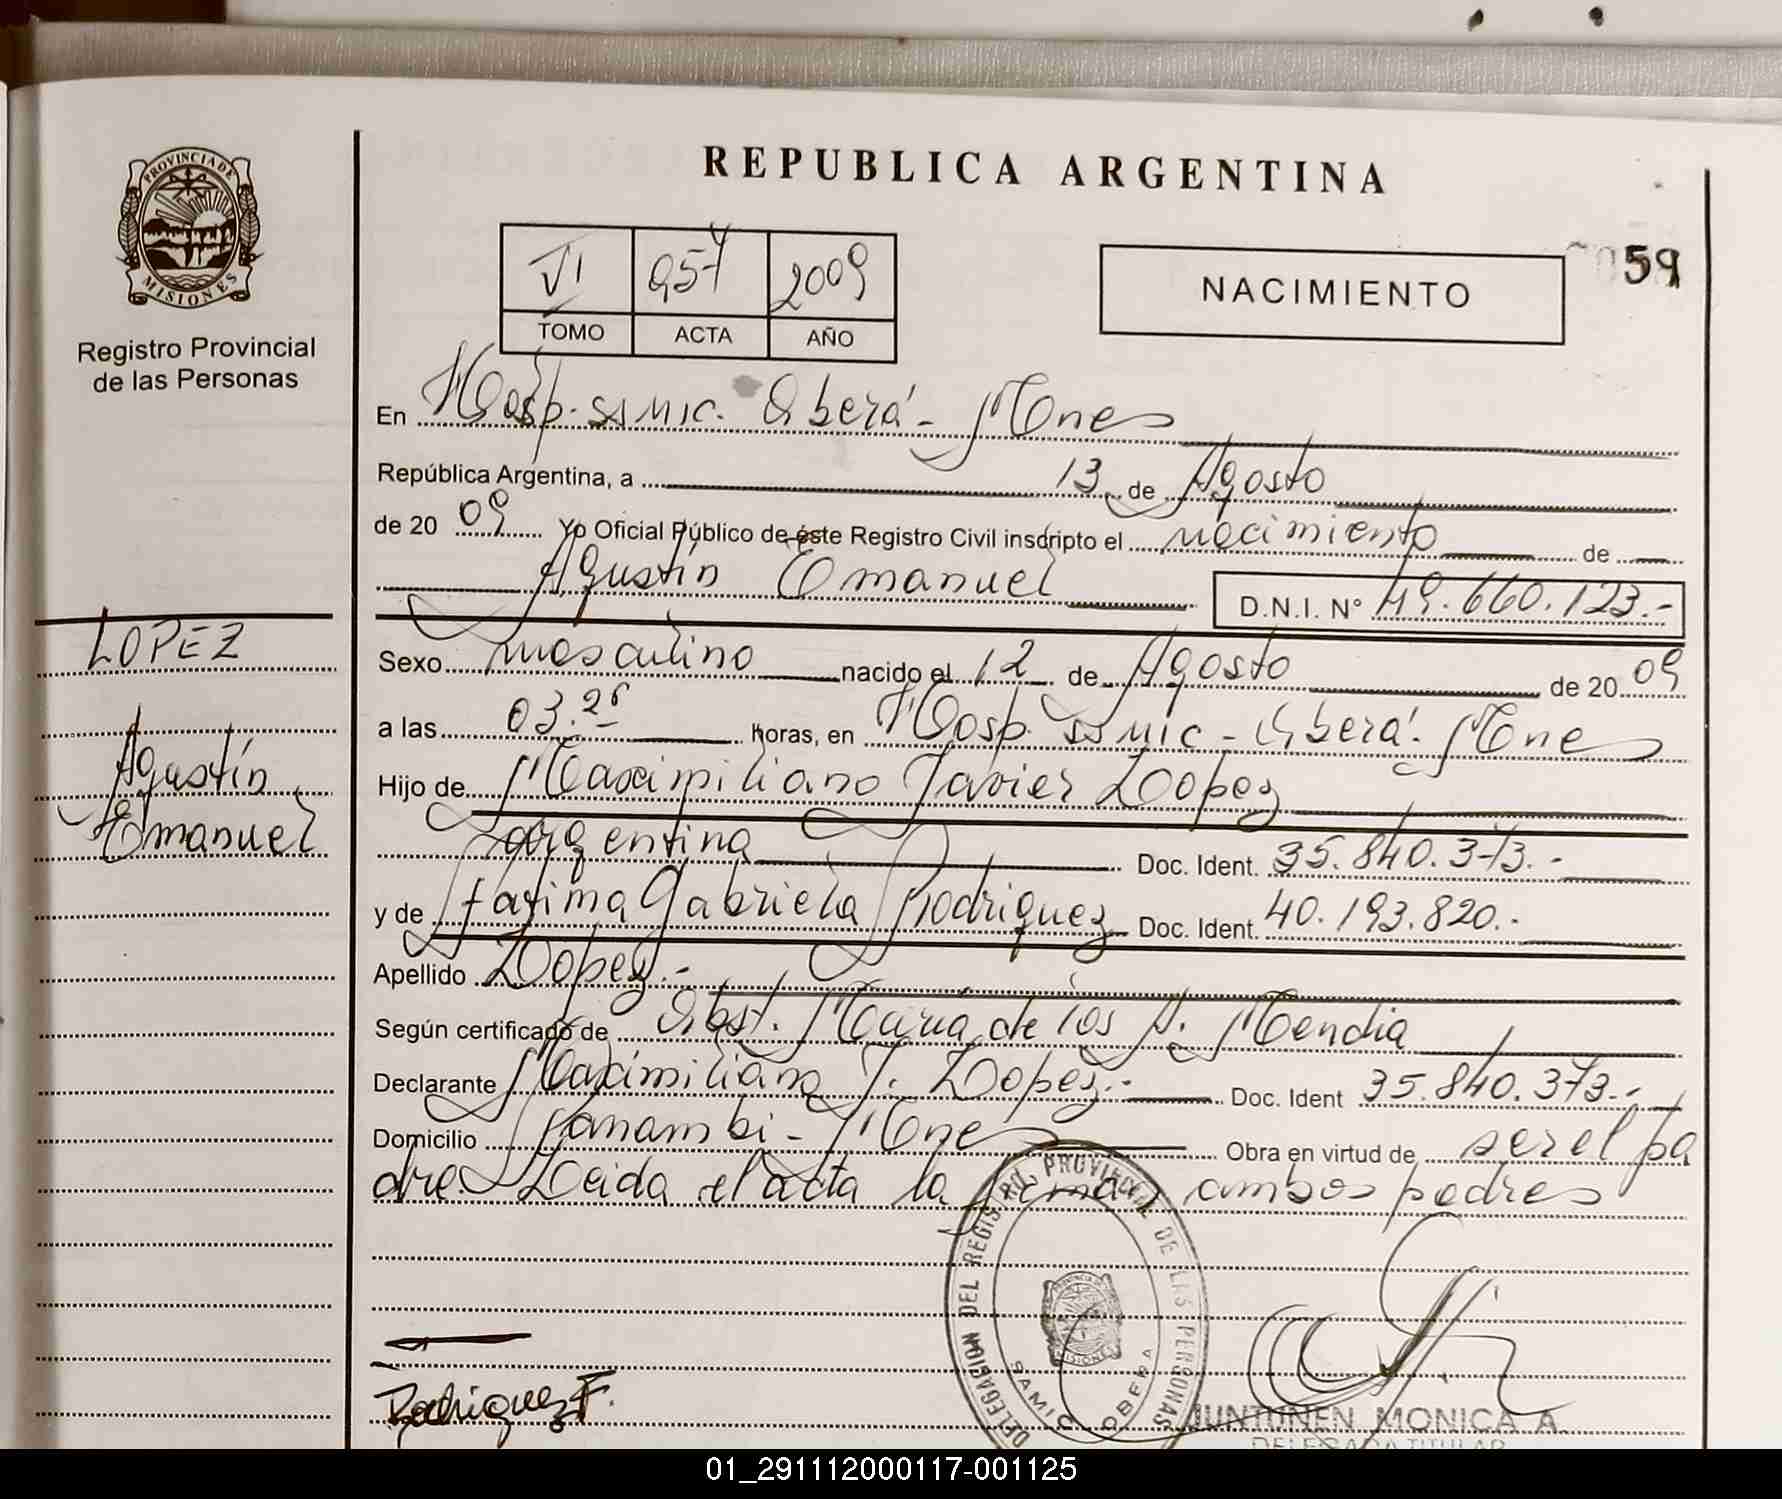 REPUBLICA ARGENTINA
PROVINCIA DE MISIONES
Registro Provincial
de las Personas
VI 057 2009
TOMO ACTA AÑO
NACIMIENTO
059
En Hosp. SAMIC. Oberá - Mnes
República Argentina, a 13 de Agosto
de 20 09 Yo Oficial Público de éste Registro Civil inscripto el nacimiento de
Agustín Emanuel
D.N.I. Nº 49.660.123.-
LOPEZ
Agustín
Emanuel
Sexo masculino nacido el 12 de Agosto de 20 09
a las 03.25 horas, en Hosp. SAMIC - Oberá. Mnes
Hijo de Maximiliano Javier Lopez
argentina Doc. Ident. 35.840.373.-
y de Fatima Gabriela Rodriguez Doc. Ident. 40.193.820.-
Apellido Lopez.-
Según certificado de Obst. María de los A. Mendia
Declarante Maximiliano J. Lopez.- Doc. Ident 35.840.373.-
Domicilio Panambi - Mnes Obra en virtud de ser el pa
dre. Leida el acta la firman ambos padres
DELEGACION DEL REGISTRO PROVINCIAL DE LAS PERSONAS
SAMIC OBERA
MISIONES
Rodriguez F.
JUNTUNEN MONICA A.
DELEGADA TITULAR
01_291112000117-001125